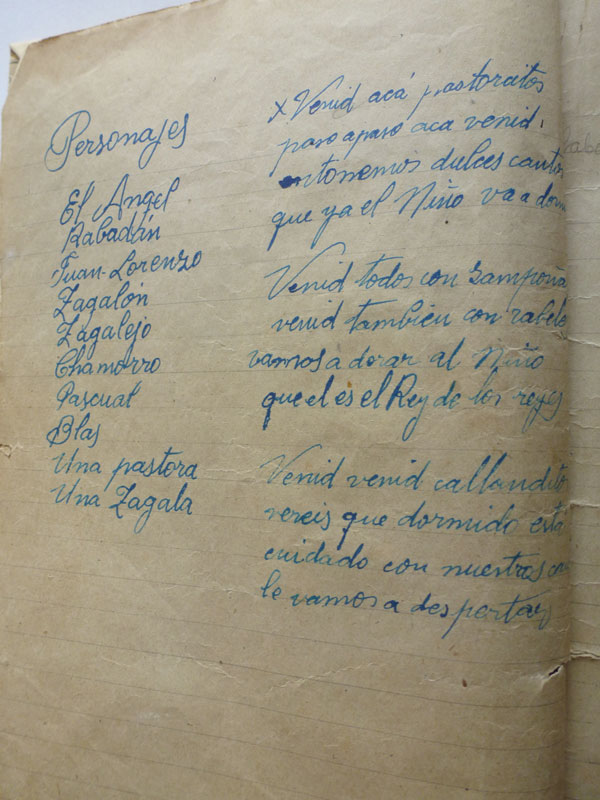 Personajes
El Angel
Rabadán
Juan-Lorenzo
Zagalón
Zagalejo
Chamorro
Pascual
Blas
Una pastora
Una Zagala
x Venid acá pastorcitos
paso a paso aca venid,
entonemos dulces cantos
que ya el Niño va a dorm
Venid todos con zampoña
venid tambien con rabele
vamos a dorar al Niño
que el es el Rey de los reyes
Venid venid callandito
vereis que dormido está
cuidado con nuestros
le vamos a despertar